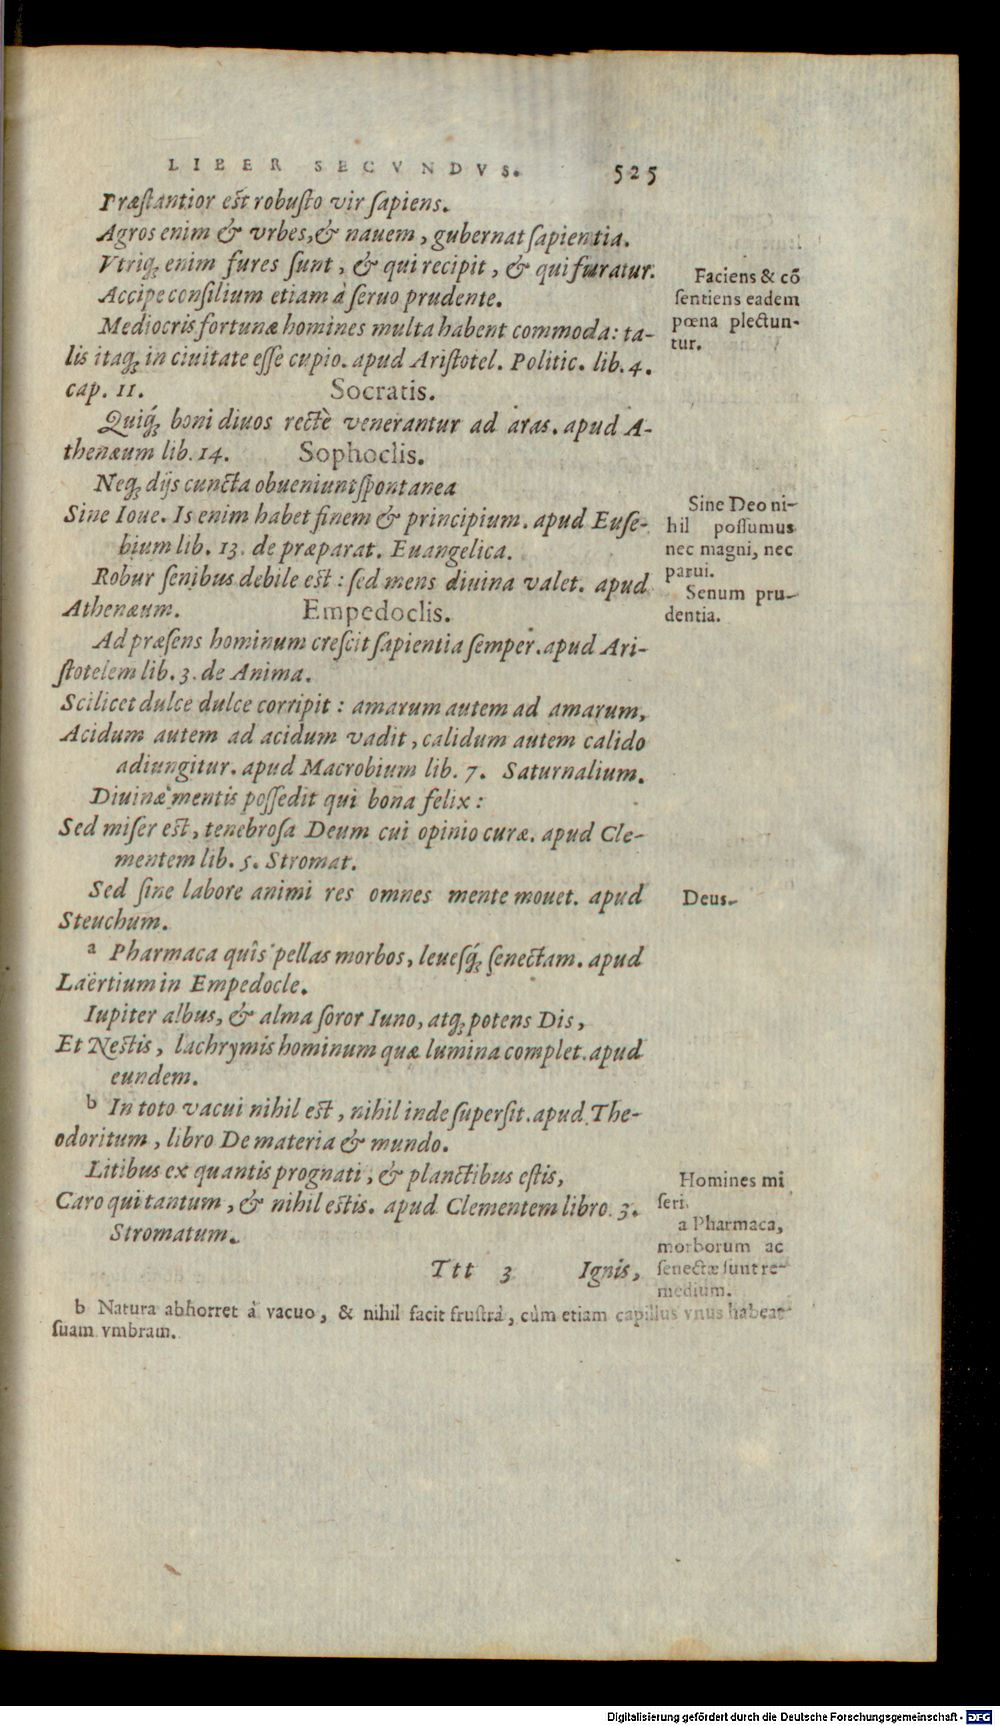 LIBER SECVNDVS. 525
Præſtantior eſt robuſto vir ſapiens.
Agros enim & vrbes, & nauem, gubernat ſapientia.
Vtriq; enim fures ſunt, & qui recipit, & qui furatur.
Accipe conſilium etiam à ſeruo prudente.
Mediocris fortunæ homines multa habent commoda: ta-
lis itaq; in ciuitate eſſe cupio. apud Ariſtotel. Politic. lib. 4.
cap. 11. Socratis.
Quiq́; boni diuos rectè venerantur ad aras. apud A-
thenæum lib. 14. Sophoclis.
Neq; dijs cuncta obueniunt ſpontanea
Sine Ioue. Is enim habet finem & principium. apud Euſe-
bium lib. 13. de præparat. Euangelica.
Robur ſenibus debile eſt: ſed mens diuina valet. apud
Athenæum. Empedoclis.
Ad præſens hominum creſcit ſapientia ſemper. apud Ari-
ſtotelem lib. 3. de Anima.
Scilicet dulce dulce corripit: amarum autem ad amarum,
Acidum autem ad acidum vadit, calidum autem calido
adiungitur. apud Macrobium lib. 7. Saturnalium.
Diuinæ mentis poſſedit qui bona felix:
Sed miſer eſt, tenebroſa Deum cui opinio curæ. apud Cle-
mentem lib. 5. Stromat.
Sed ſine labore animi res omnes mente mouet. apud
Steuchum.
a Pharmaca quîs pellas morbos, leueſq́; ſenectam. apud
Laërtium in Empedocle.
Iupiter albus, & alma ſoror Iuno, atq; potens Dis,
Et Neſtis, lachrymis hominum quæ lumina complet. apud
eundem.
b In toto vacui nihil eſt, nihil inde ſuperſit. apud The-
odoritum, libro De materia & mundo.
Litibus ex quantis prognati, & planctibus eſtis,
Caro qui tantum, & nihil eſtis. apud Clementem libro 3.
Stromatum.
Ttt 3 Ignis,
Faciens & cō
ſentiens eadem
pœna plectun-
tur.
Sine Deo ni-
hil poſſumus
nec magni, nec
parui.
Senum pru-
dentia.
Deus.
Homines mi
ſeri.
a Pharmaca,
morborum ac
ſenectæ ſunt re-
medium.
b Natura abhorret à vacuo, & nihil facit fruſtrà, cùm etiam capillus vnus habeat
ſuam vmbram.
Digitalisierung gefördert durch die Deutsche Forschungsgemeinschaft - DFG